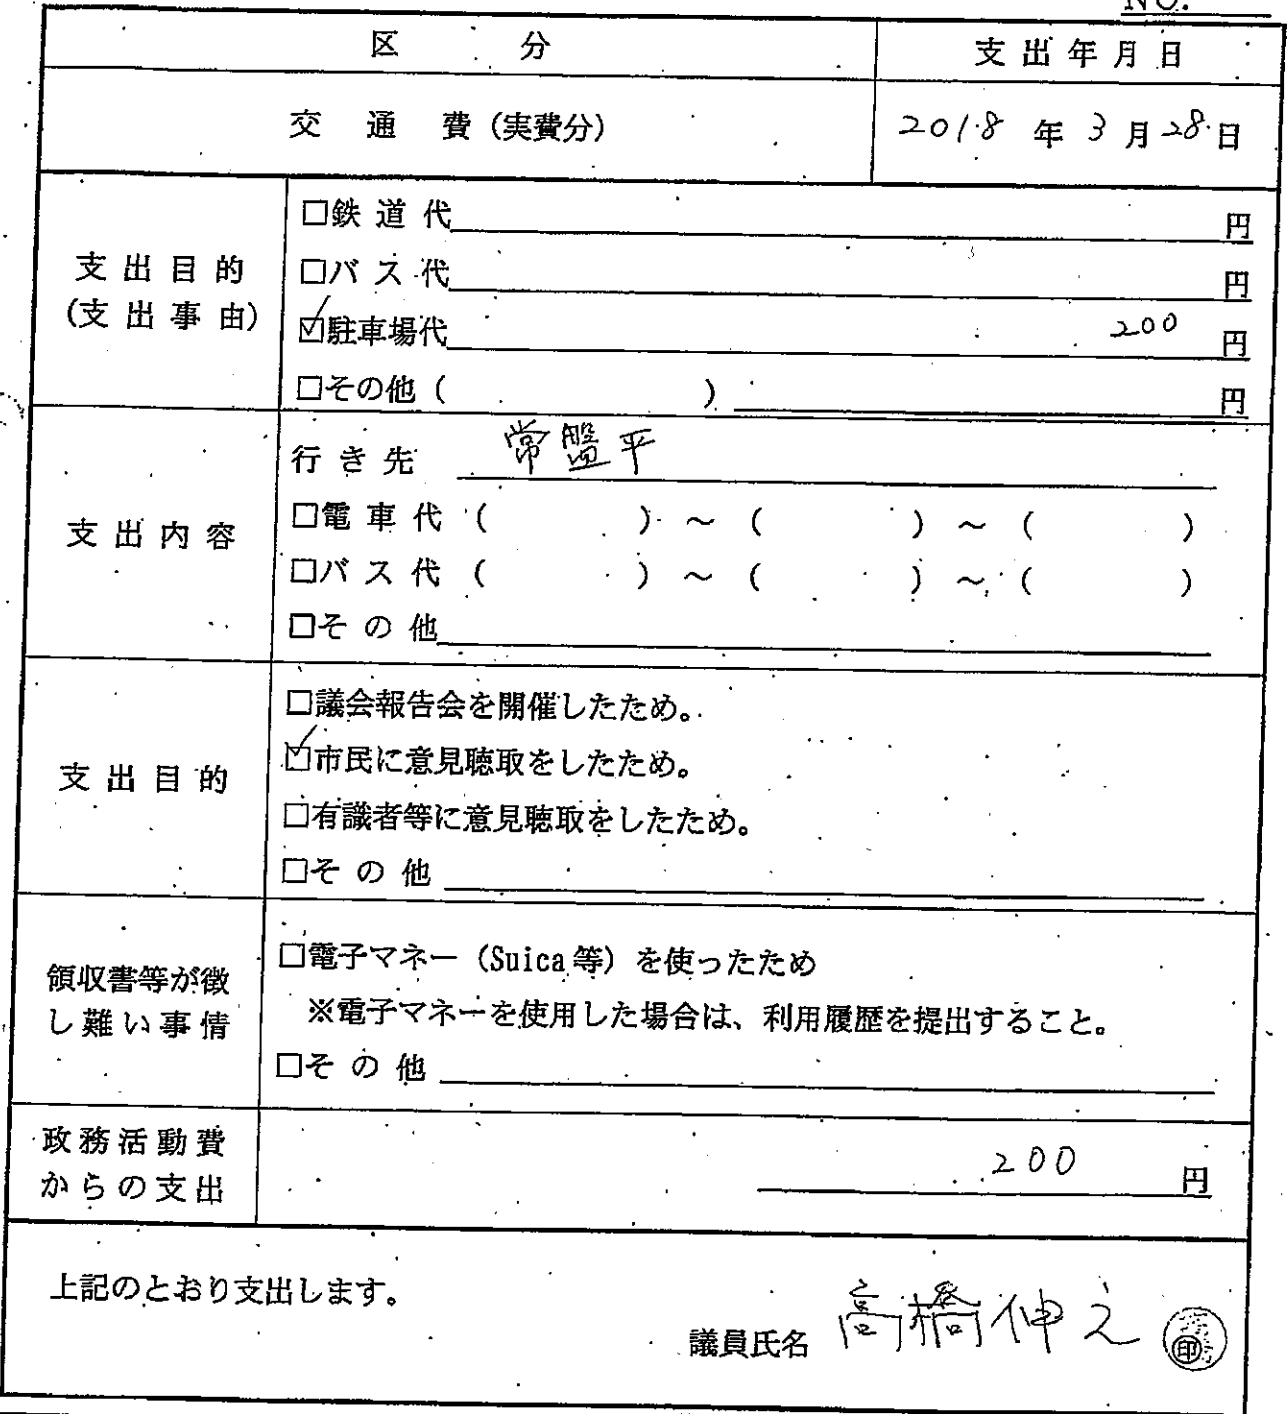 NO.
区 分 支出年月日
交 通 費（実費分） 2018 年 3 月 28 日
支出目的
（支出事由）
□鉄道代 円
□バス代 円
☑駐車場代 200 円
□その他（ ） 円
支出内容
行き先 常盤平
□電車代（ ）～（ ）～（ ）
□バス代（ ）～（ ）～（ ）
□その他
支出目的
□議会報告会を開催したため。
☑市民に意見聴取をしたため。
□有識者等に意見聴取をしたため。
□その他
領収書等が徴
し難い事情
□電子マネー（Suica等）を使ったため
※電子マネーを使用した場合は、利用履歴を提出すること。
□その他
政務活動費
からの支出
200 円
上記のとおり支出します。
議員氏名 高橋伸之 印